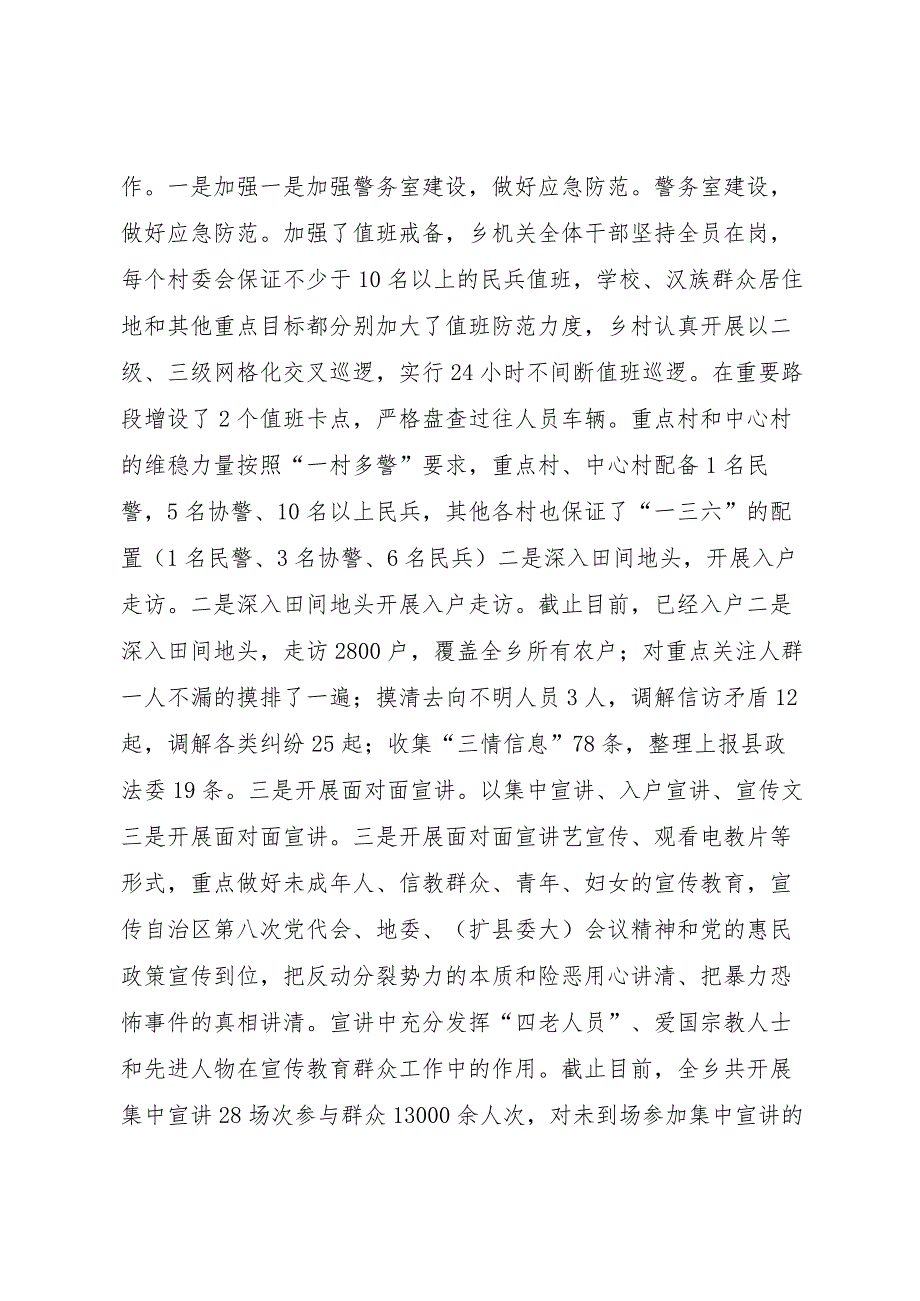 作。一是加强一是加强警务室建设，做好应急防范。警务室建设，
做好应急防范。加强了值班戒备，乡机关全体干部坚持全员在岗，
每个村委会保证不少于 10 名以上的民兵值班，学校、汉族群众居住
地和其他重点目标都分别加大了值班防范力度，乡村认真开展以二
级、三级网格化交叉巡逻，实行 24 小时不间断值班巡逻。在重要路
段增设了 2 个值班卡点，严格盘查过往人员车辆。重点村和中心村
的维稳力量按照“一村多警”要求，重点村、中心村配备 1 名民
警，5 名协警、10 名以上民兵，其他各村也保证了“一三六”的配
置（1 名民警、3 名协警、6 名民兵）二是深入田间地头，开展入户
走访。二是深入田间地头开展入户走访。截止目前，已经入户二是
深入田间地头，走访 2800 户，覆盖全乡所有农户；对重点关注人群
一人不漏的摸排了一遍；摸清去向不明人员 3 人，调解信访矛盾 12
起，调解各类纠纷 25 起；收集“三情信息”78 条，整理上报县政
法委 19 条。三是开展面对面宣讲。以集中宣讲、入户宣讲、宣传文
三是开展面对面宣讲。三是开展面对面宣讲艺宣传、观看电教片等
形式，重点做好未成年人、信教群众、青年、妇女的宣传教育，宣
传自治区第八次党代会、地委、（扩县委大）会议精神和党的惠民
政策宣传到位，把反动分裂势力的本质和险恶用心讲清、把暴力恐
怖事件的真相讲清。宣讲中充分发挥“四老人员”、爱国宗教人士
和先进人物在宣传教育群众工作中的作用。截止目前，全乡共开展
集中宣讲 28 场次参与群众 13000 余人次，对未到场参加集中宣讲的